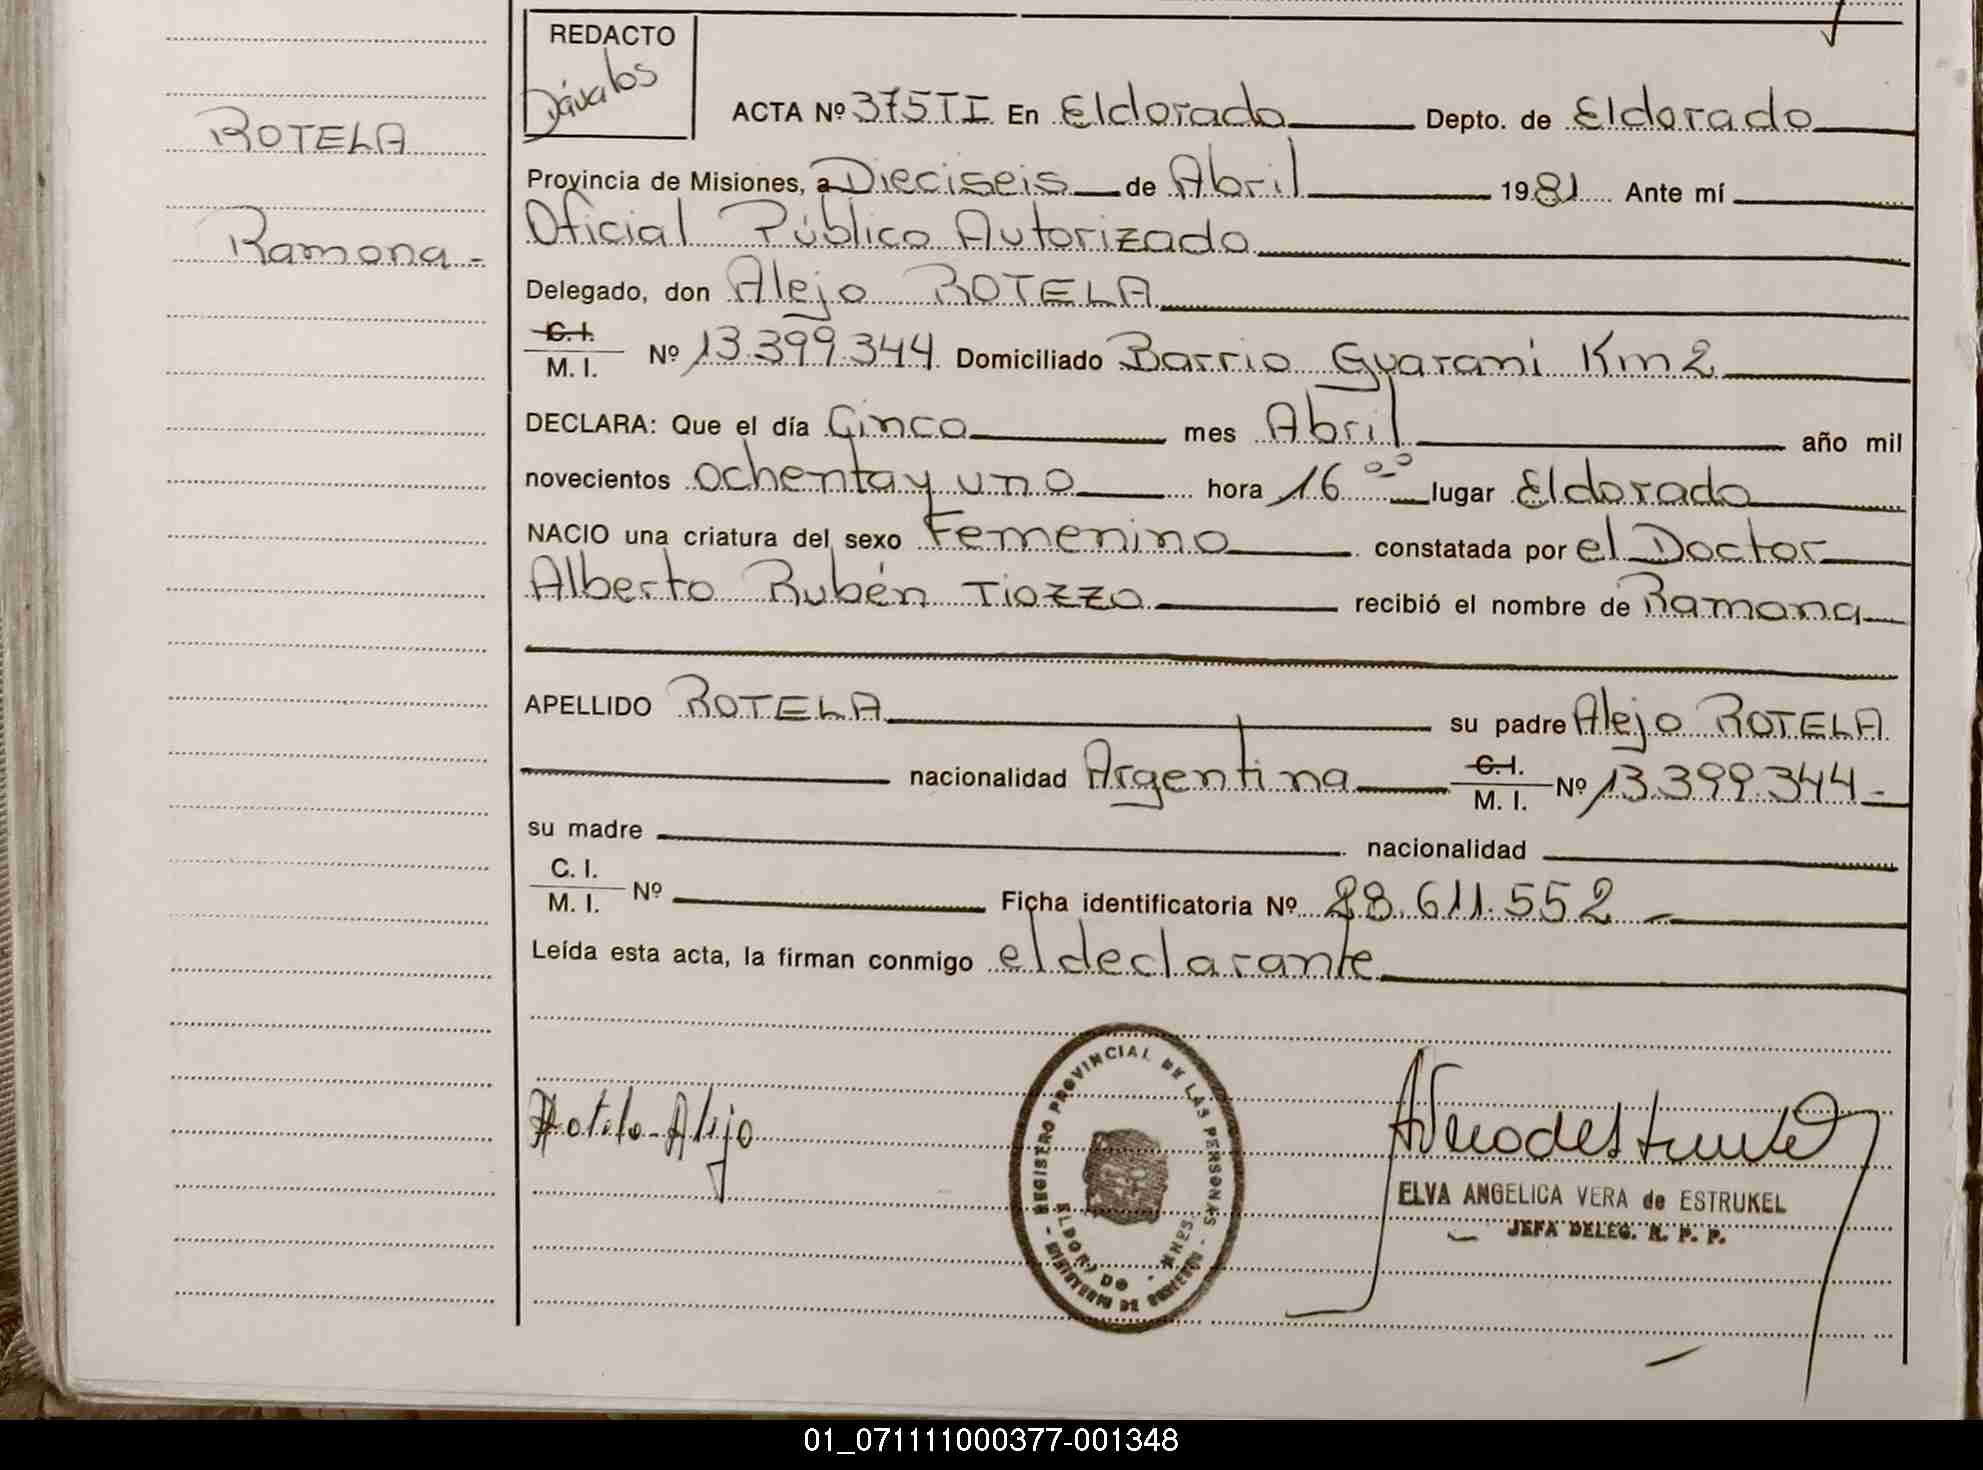 REDACTO
Dávalos
ROTELA
Ramona-
ACTA Nº 375TI En Eldorado Depto. de Eldorado
Provincia de Misiones, a Dieciseis de Abril 1981 Ante mí
Oficial Público Autorizado
Delegado, don Alejo ROTELA
C.I.
M. I. Nº 13.399.344 Domiciliado Barrio Guarani Km 2
DECLARA: Que el día Cinco mes Abril año mil
novecientos ochenta y uno hora 16 oo lugar Eldorado
NACIO una criatura del sexo Femenino constatada por el Doctor
Alberto Rubén Tiozzo recibió el nombre de Ramona
APELLIDO ROTELA su padre Alejo ROTELA
nacionalidad Argentina C.I. M. I. Nº 13.399.344-
su madre nacionalidad
C. I.
M. I. Nº Ficha identificatoria Nº 28.611.552-
Leída esta acta, la firman conmigo el declarante
Rotela Alejo
REGISTRO PROVINCIAL DE LAS PERSONAS
ELDORADO - MNES.
- MINISTERIO DE GOBIERNO -
ELVA ANGELICA VERA de ESTRUKEL
JEFA DELEG. R. P. P.
01_071111000377-001348